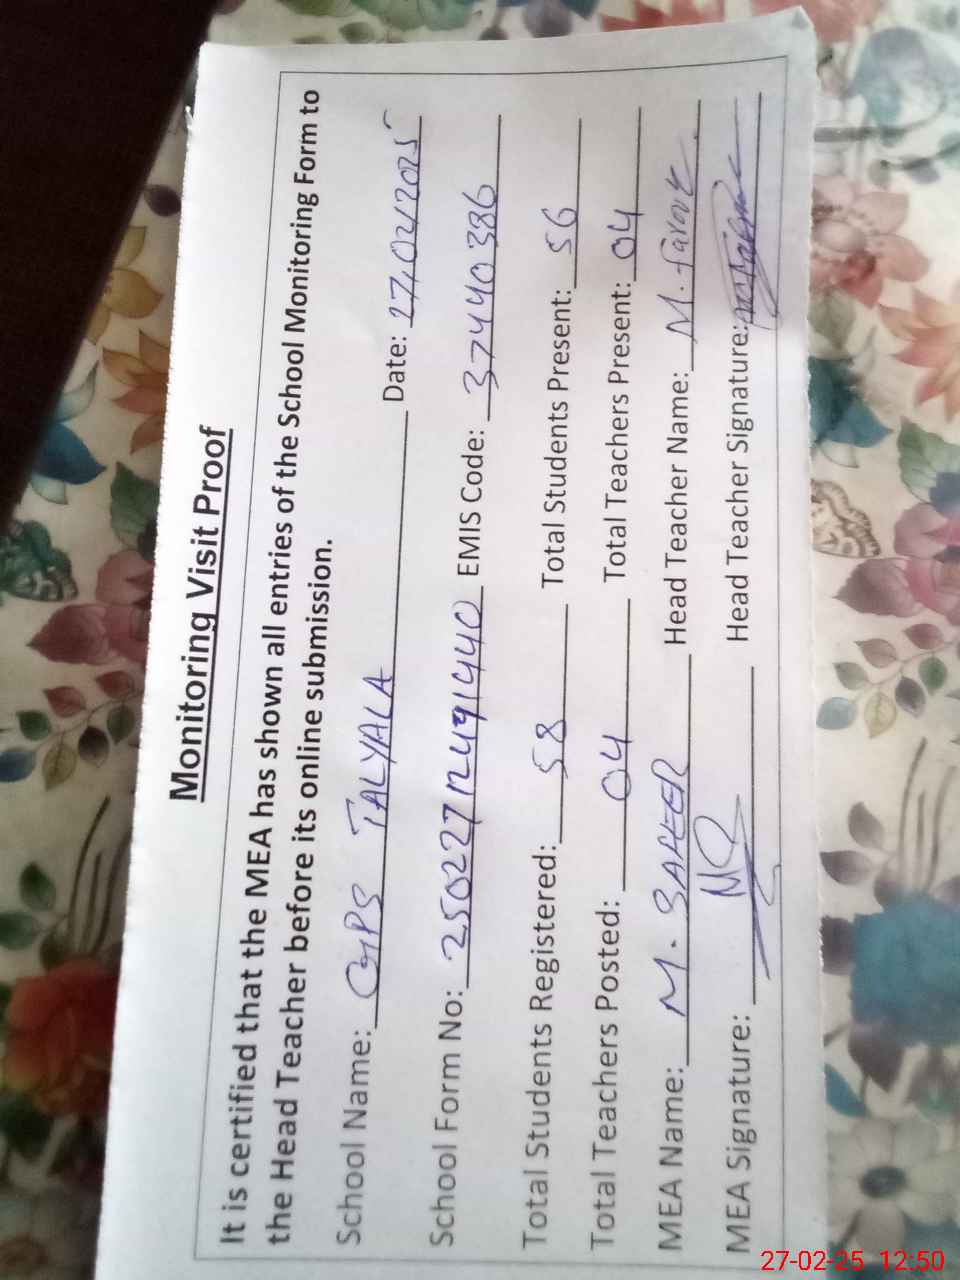 Monitoring Visit Proof
It is certified that the MEA has shown all entries of the School Monitoring Form to
the Head Teacher before its online submission.
School Name: GPS TALYALA Date: 27/02/2025
School Form No: 25022712491440 EMIS Code: 37440386
Total Students Registered: 58 Total Students Present: 56
Total Teachers Posted: 04 Total Teachers Present: 04
MEA Name: M. SAFEER Head Teacher Name: M. Farove
MEA Signature: Head Teacher Signature:
27-02-25 12:50